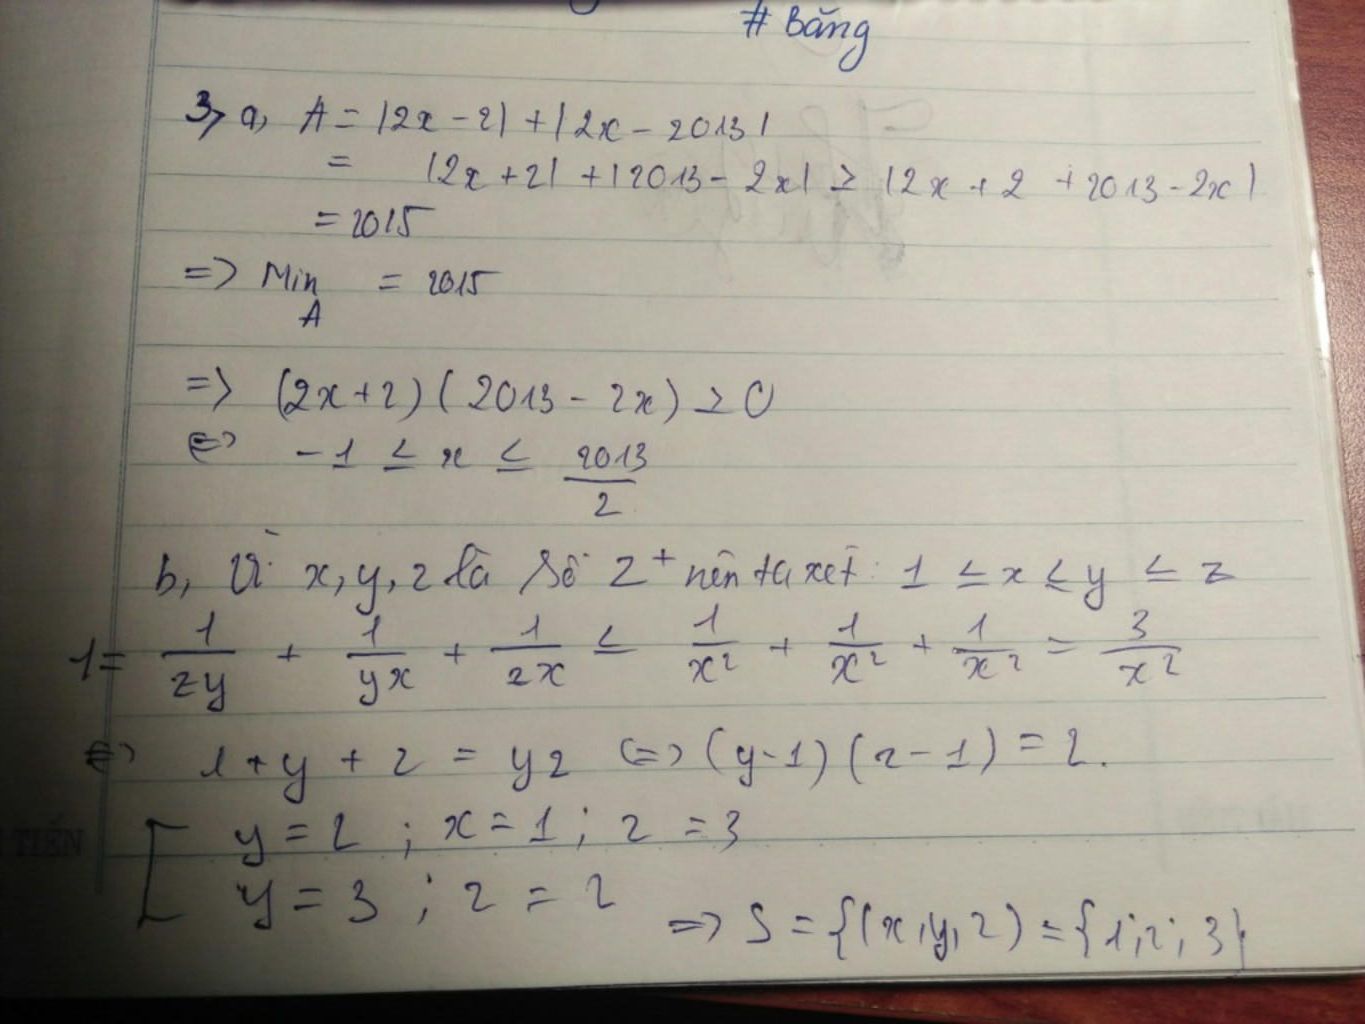 # Băng
3, a, A = |2x - 2| + |2x - 2013|
= |2x + 2| + |2013 - 2x| ≥ |2x + 2 + 2013 - 2x|
= 2015
=> Min A = 2015
=> (2x + 2)(2013 - 2x) ≥ 0
<=> -1 ≤ x ≤ 2013/2
b, Vì x, y, z là số Z⁺ nên ta xét: 1 ≤ x ≤ y ≤ z
1 = 1/zy + 1/yx + 1/zx ≤ 1/x² + 1/x² + 1/x² = 3/x²
<=> 1 + y + z = yz <=> (y-1)(z-1) = 2.
[ y = 2 ; x = 1 ; z = 3
y = 3 ; z = 2
=> S = {(x, y, z) = {1; 2; 3}
TIẾN